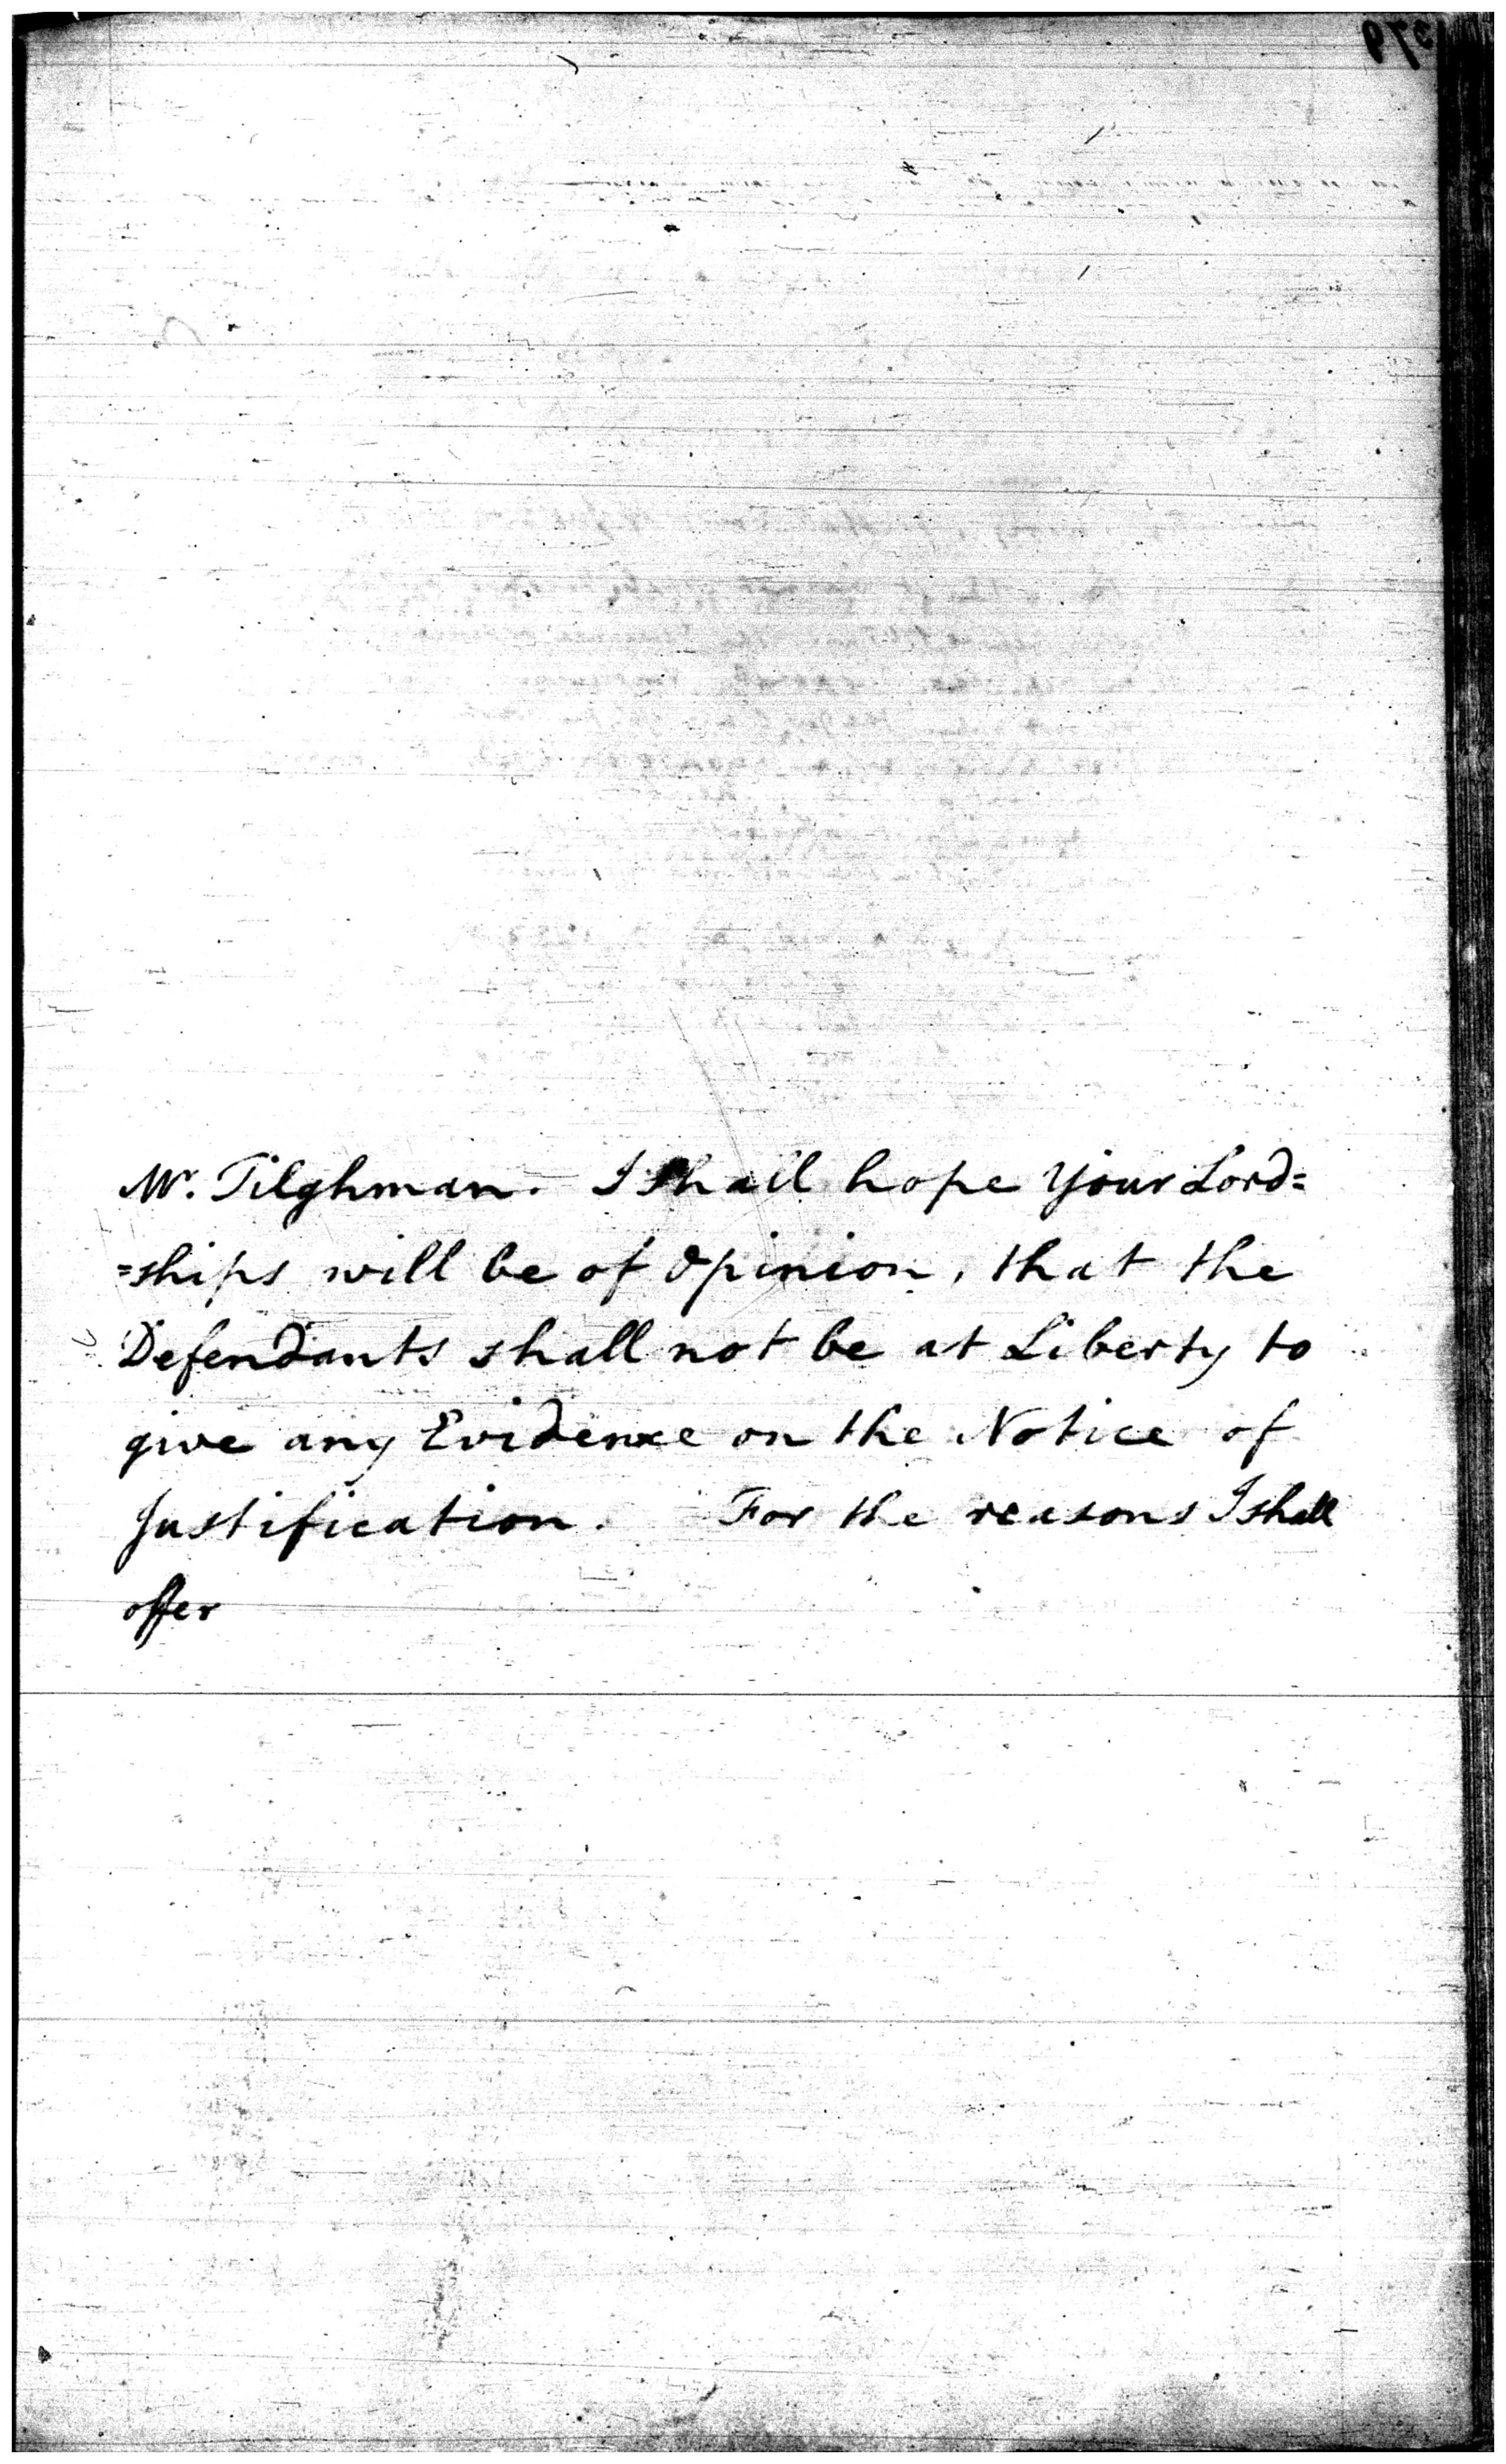 Mr. Tilghman. I shall hope Your Lord=
=ships will be of Opinion, that the
Defendants shall not be at Liberty to
give any Evidence on the Notice of
Justification. For the reasons I shall
offer